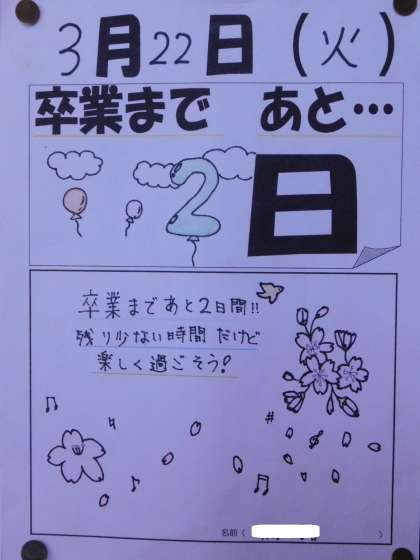 3月22日(火)
卒業まで あと…
2日
卒業まであと2日間!!
残り少ない時間だけど
楽しく過ごそう!
名前( )